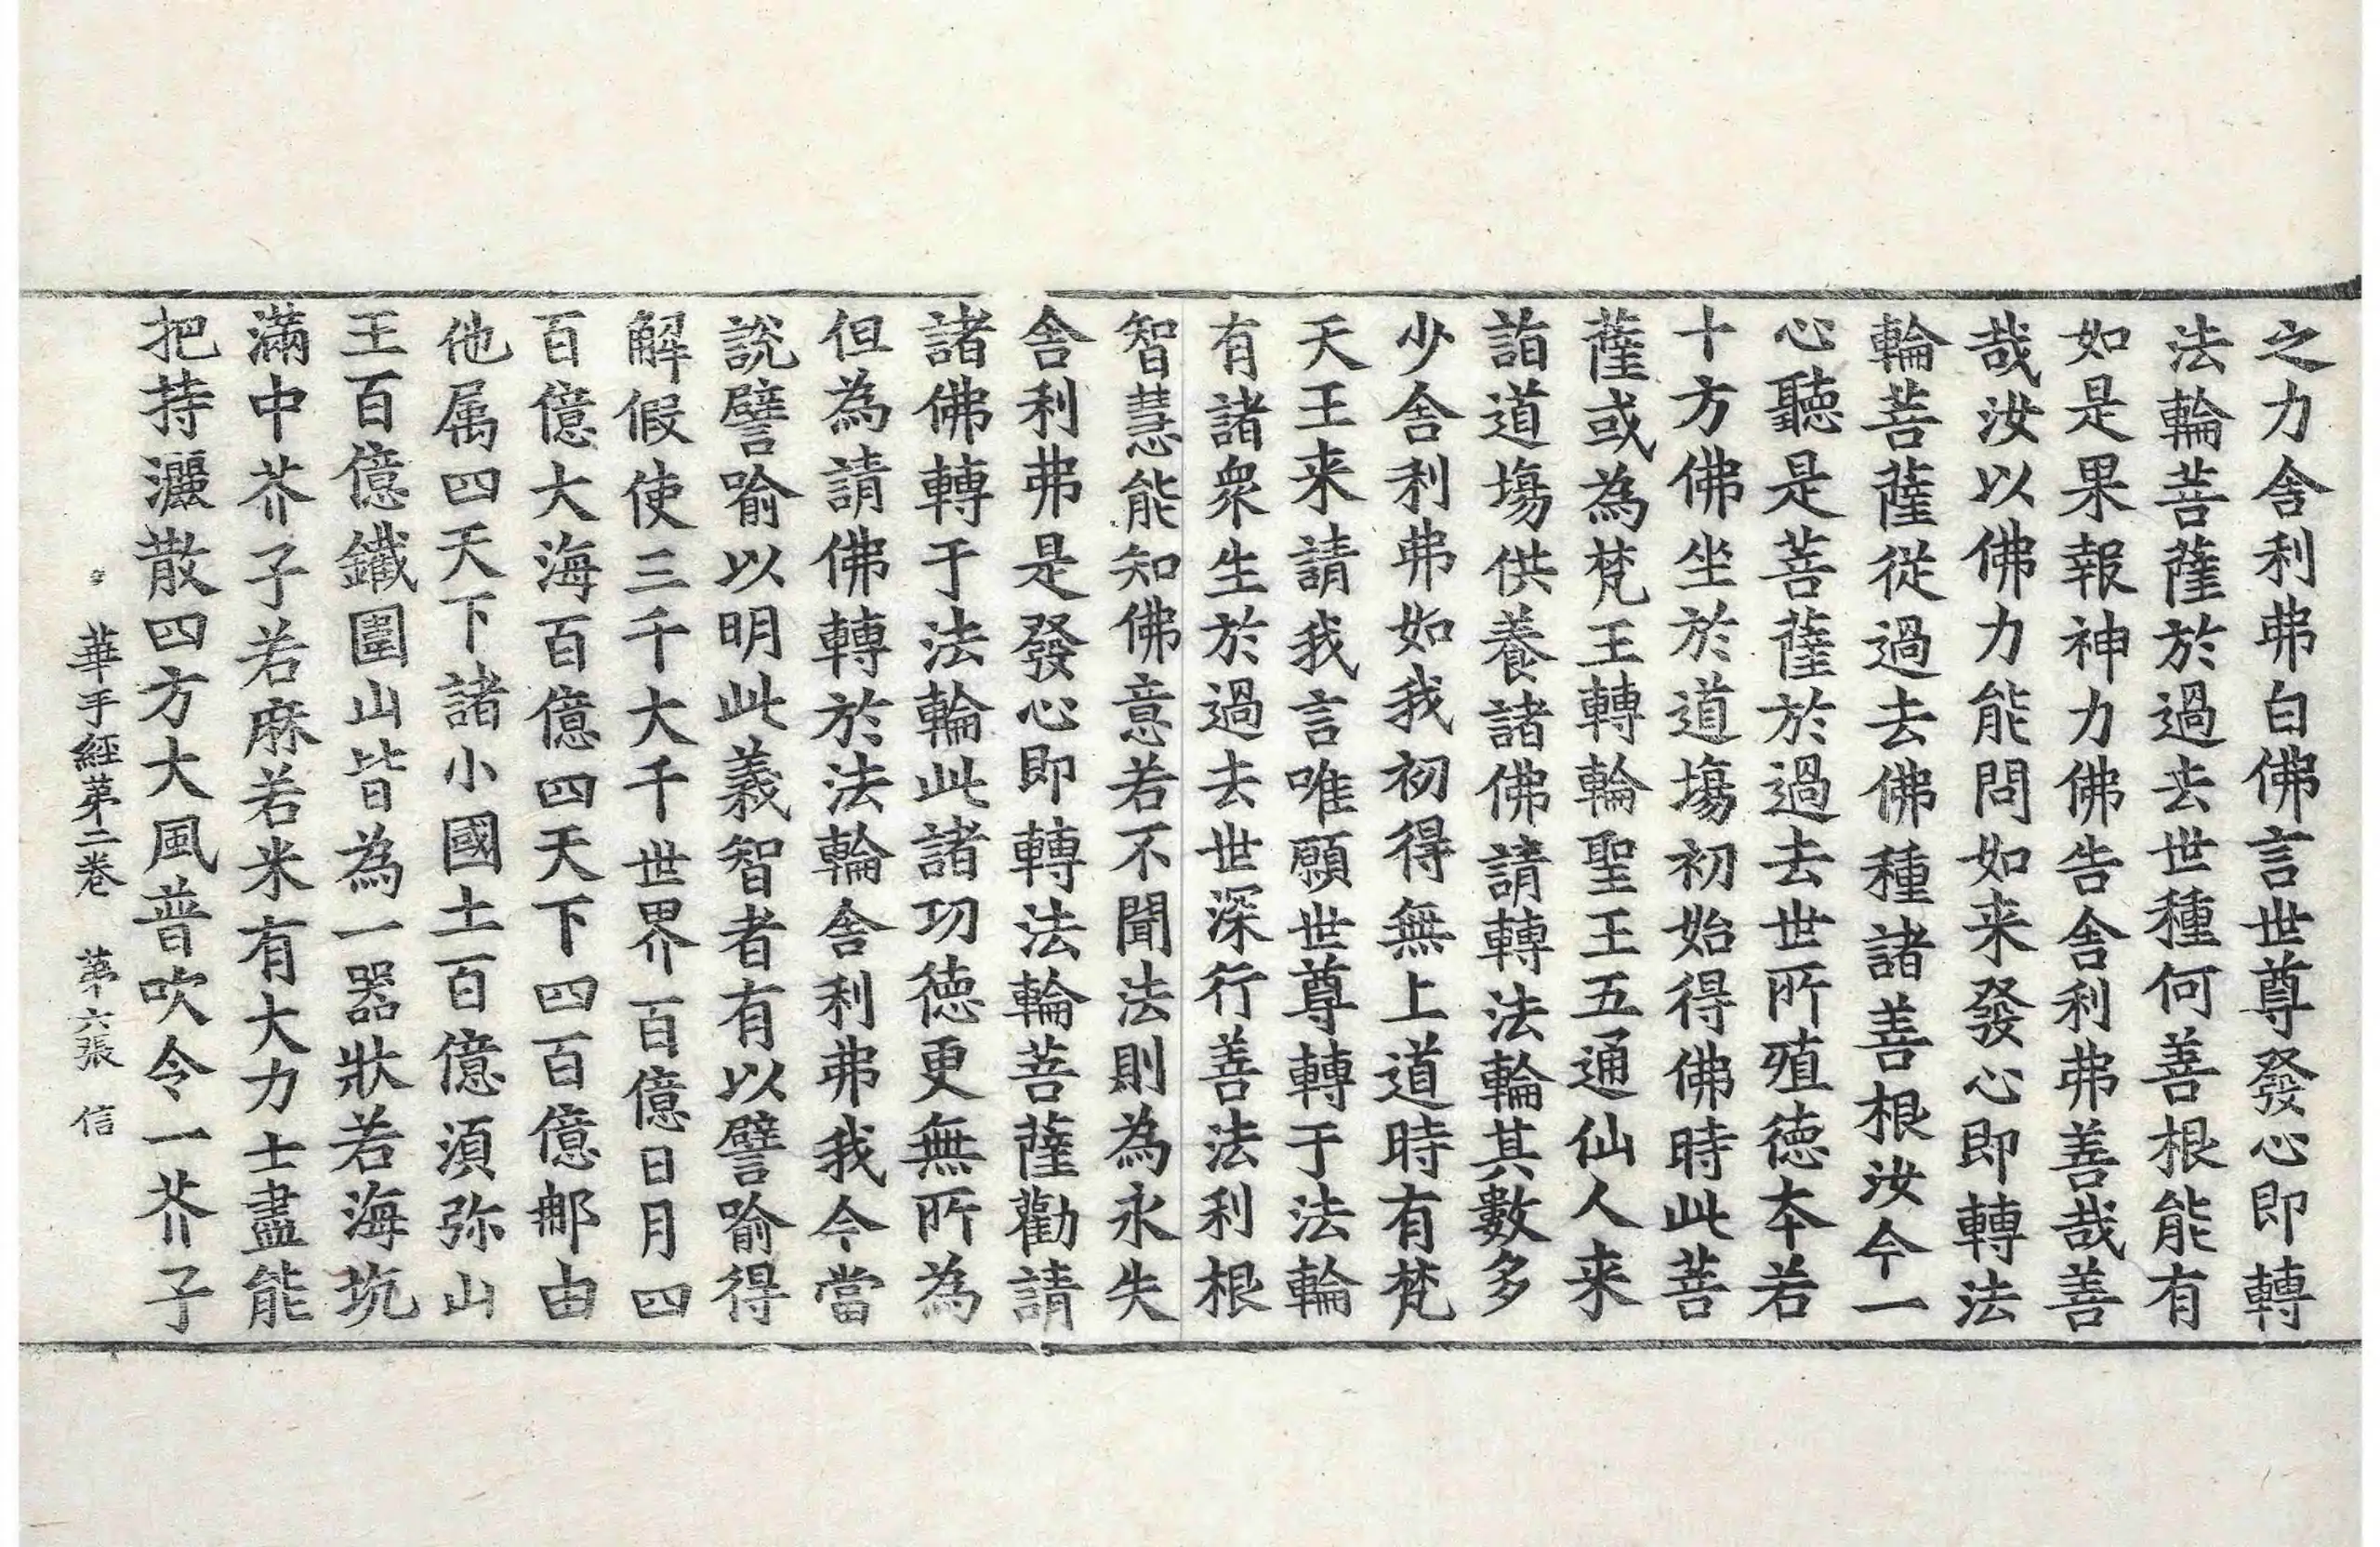 之力舍利弗白佛言世尊發心即轉
法輪菩薩於過去世種何善根能有
如是果報神力佛告舍利弗善哉善
哉汝以佛力能問如来發心即轉法
輪菩薩從過去佛種諸善根汝今一
心聽是菩薩於過去世所殖德本若
十方佛坐於道塲初始得佛時此菩
薩或為梵王轉輪聖王五通仙人来
詣道塲供養諸佛請轉法輪其數多
少舍利弗如我初得無上道時有梵
天王来請我言唯願世尊轉于法輪
有諸衆生於過去世深行善法利根
智慧能知佛意若不聞法則為永失
舍利弗是發心即轉法輪菩薩勸請
諸佛轉于法輪此諸功德更無所為
但為請佛轉於法輪舍利弗我今當
說譬喻以明此義智者有以譬喻得
解假使三千大千世界百億日月四
百億大海百億四天下四百億郵由
他属四天下諸小國土百億須弥山
王百億鐵圍山皆為一器狀若海坑
滿中芥子若麻若米有大力士盡能
把持灑散四方大風普吹令一芥子
華手經第二卷 第六張 信